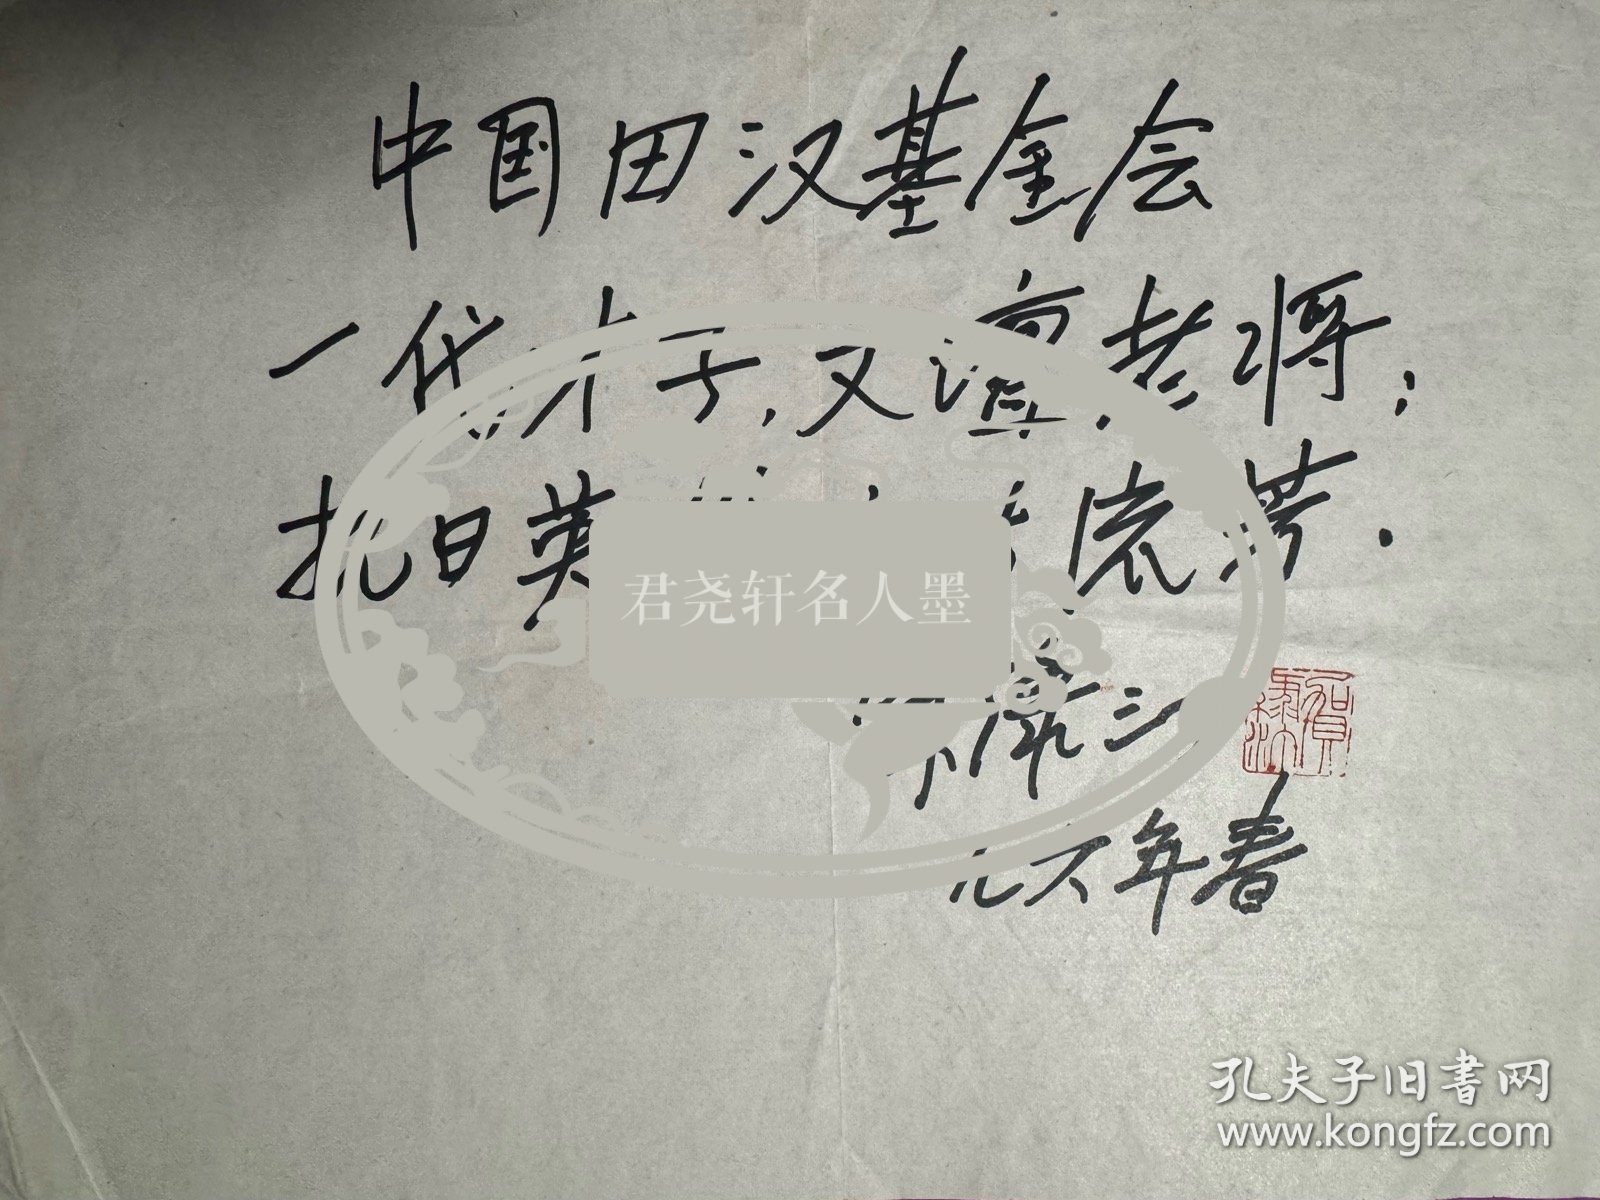 中国田汉基金会
一代才子,文坛老将;
抗日英 流芳.
三
九六年春
君尧轩名人墨
孔夫子旧书网
www.kongfz.com